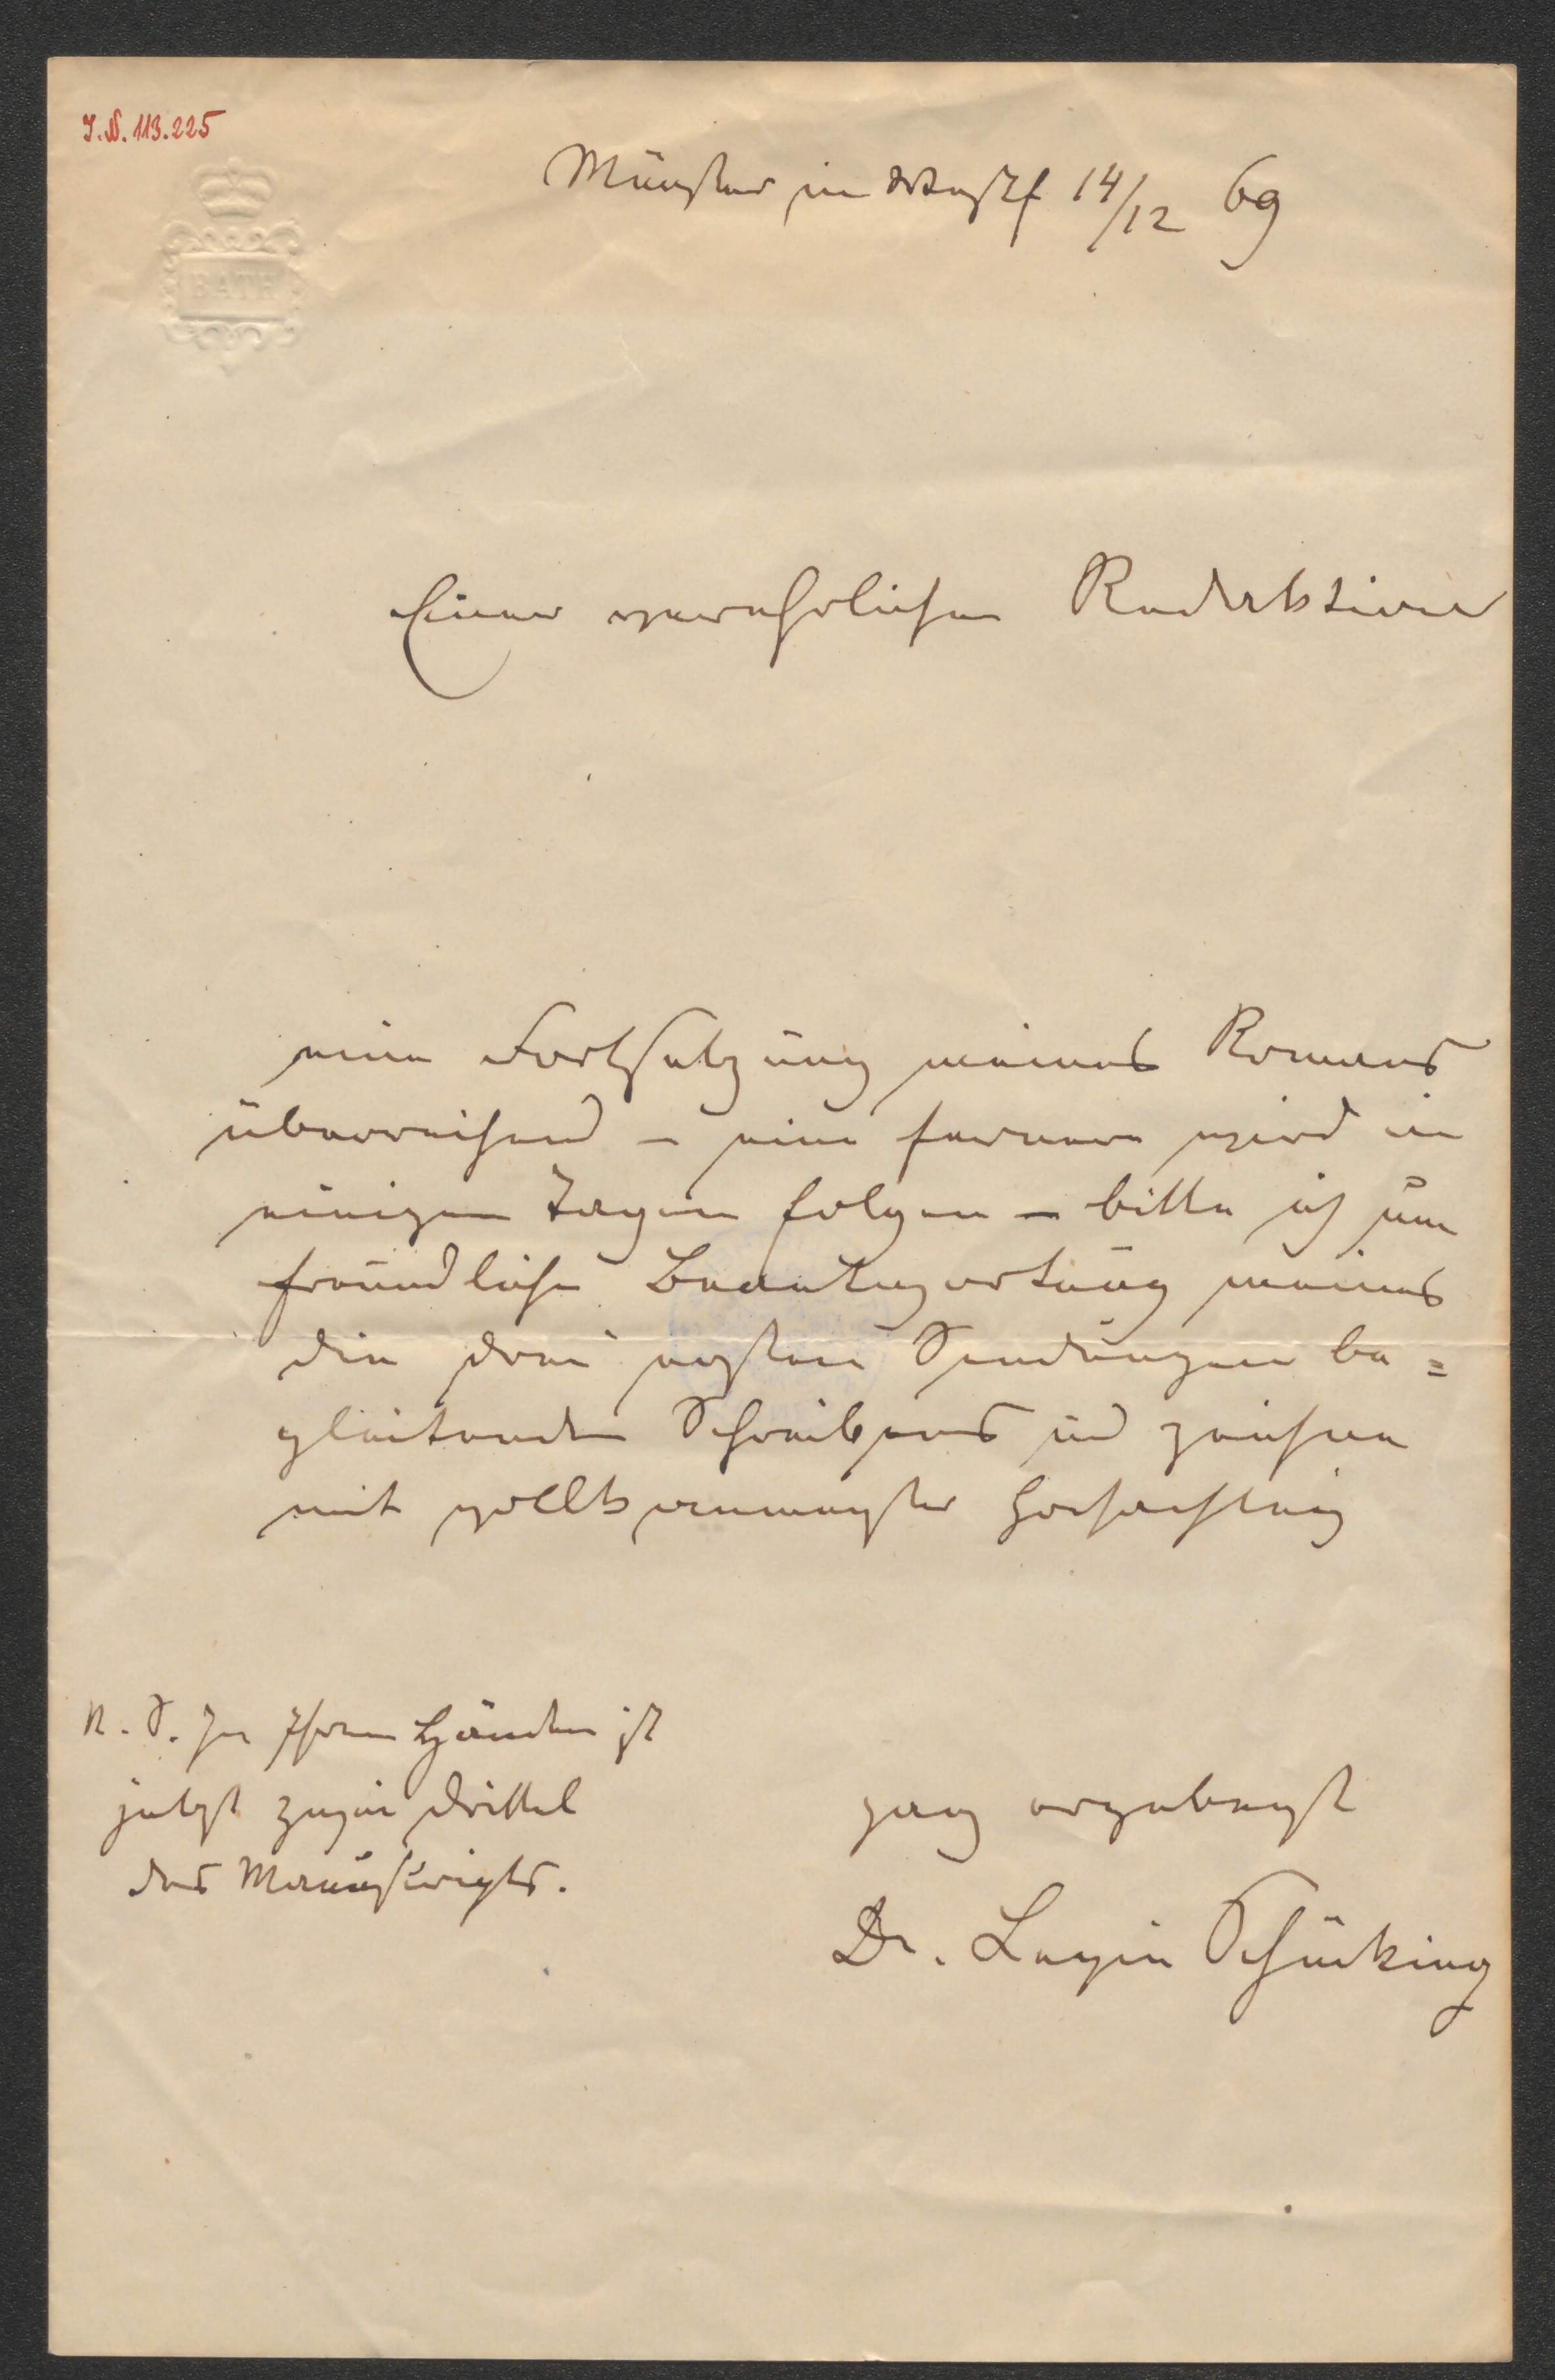 I.N. 113.225
BATH
Münster in Westf 14/12 69
Einer verehrlichen Redaktion
eine Fortsetzung meines Romans
überreichend – eine fernere wird in
einigen Tagen folgen – bitte ich um
freundliche Beantwortung meines
die drei ersten Sendungen be=
gleitenden Schreibens und zeichne
mit vollkommenster Hochachtung
N. S. In Ihren Händen ist
jetzt zwei Drittel
des Manuskripts.
ganz ergebenst
Dr. Levin Schücking